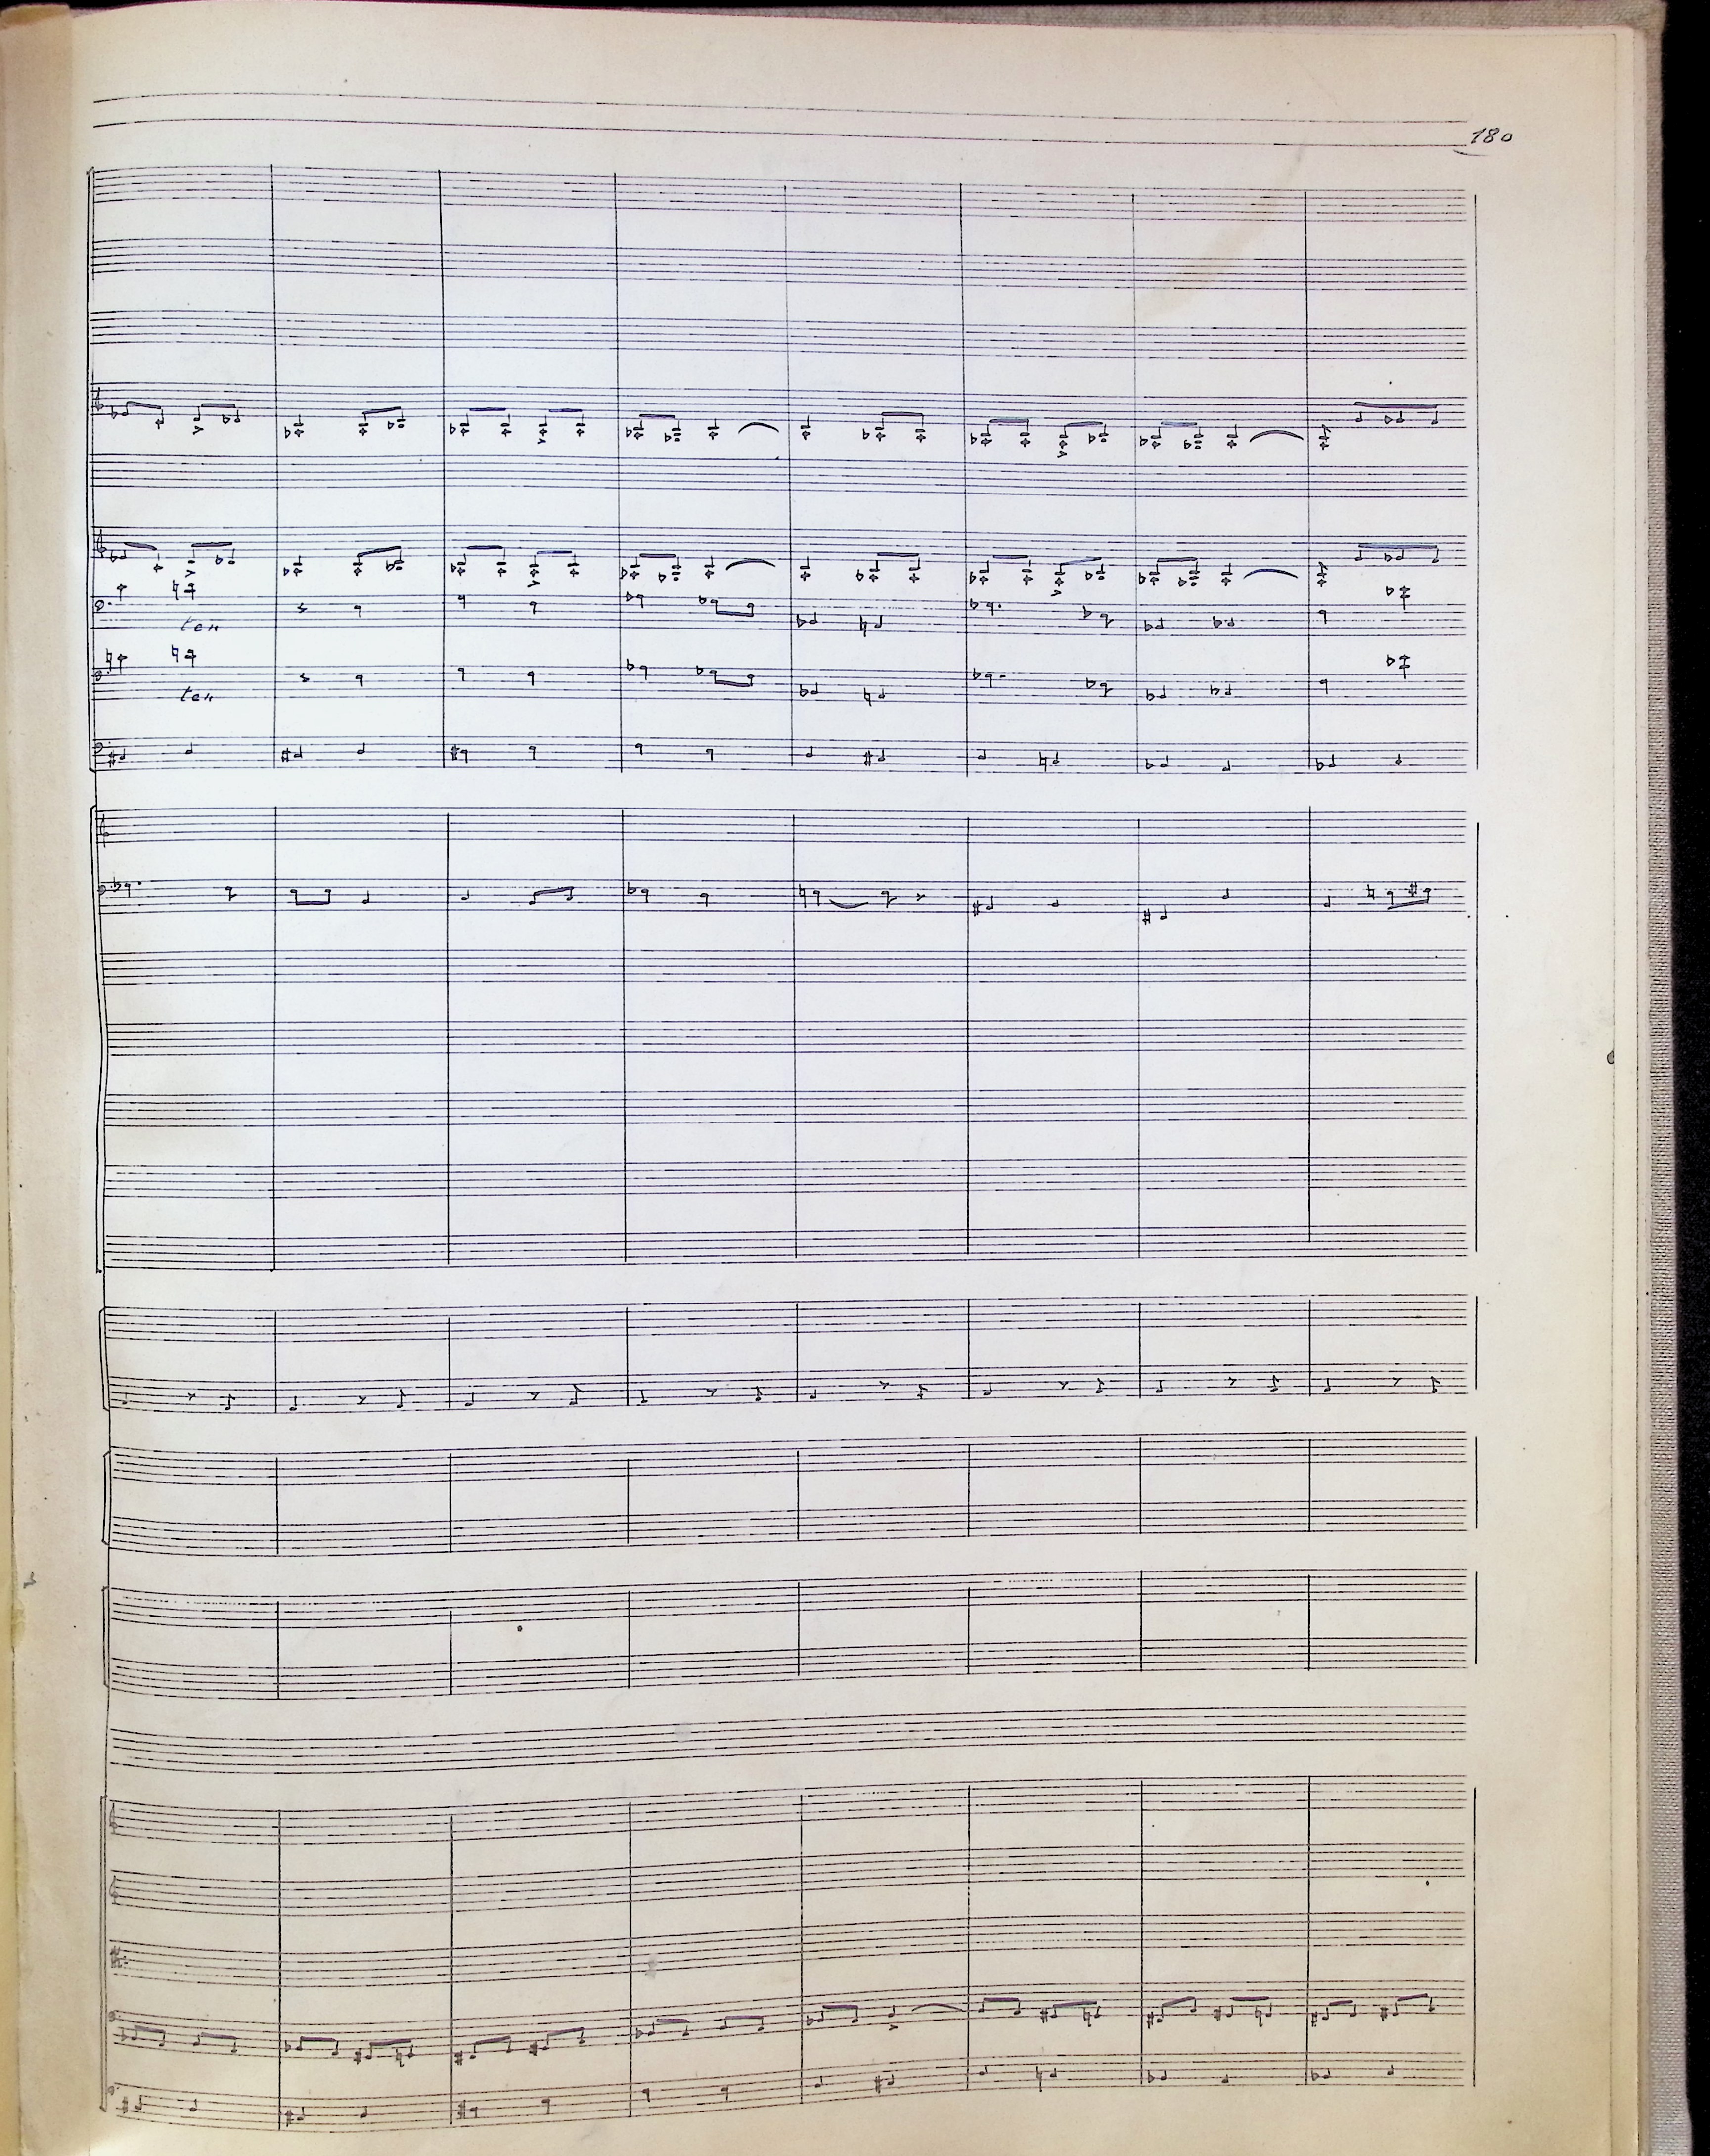 180
ten
ten